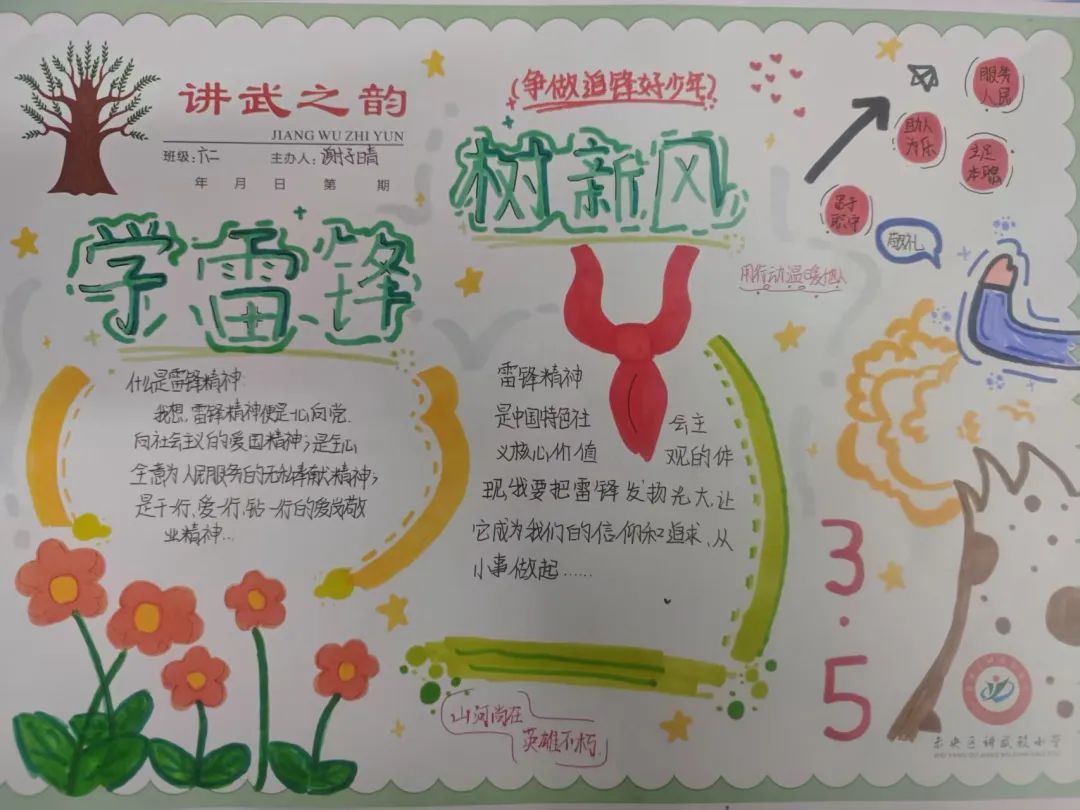 讲武之韵
JIANG WU ZHI YUN
班级:六二 主办人:谢子晴
年 月 日 第 期
(争做追锋好少年)
树新风
学雷锋
服务
人民
助人
为乐
立足
本职
忠于
职守
敬礼
用行动温暖他人
什么是雷锋精神
我想,雷锋精神便是一心向党
向社会主义的爱国精神;是全心
全意为人民服务的无私奉献精神;
是干一行、爱一行、钻一行的爱岗敬
业精神...
雷锋精神
是中国特色社 会主
义核心价值 观的体
现,我要把雷锋发扬光大,让
它成为我们的信仰和追求、从
小事做起......
3.5
山河尚在
英雄不朽
未央区讲武殿小学